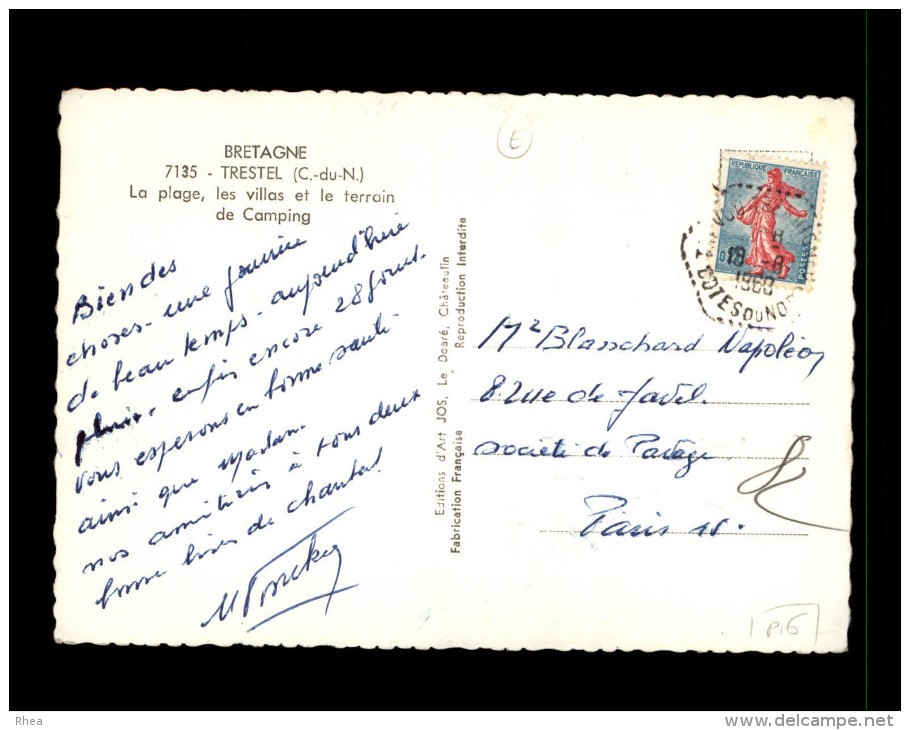 BRETAGNE
7135 - TRESTEL (C.-du-N.)
La plage, les villas et le terrain
de Camping
E
Bien des
choses. une journée
de beau temps. aujourd'hui
pluie, enfin encore 28 jours.
vous esperons en bonne santé
ainsi que Madan.
nos amitiés à tous deux
bonne de chantal
Editions d'Art JOS, Le Doaré, Châteaulin
Reproduction Interdite
Fabrication Française
REPUBLIQUE FRANÇAISE
POSTES
18 -8
1960
COTES DU NORD
Mr Blanschard Napoléon
8 rue de Javel.
societé de Partage
Paris 15.
P16
Rhea
www.delcampe.net